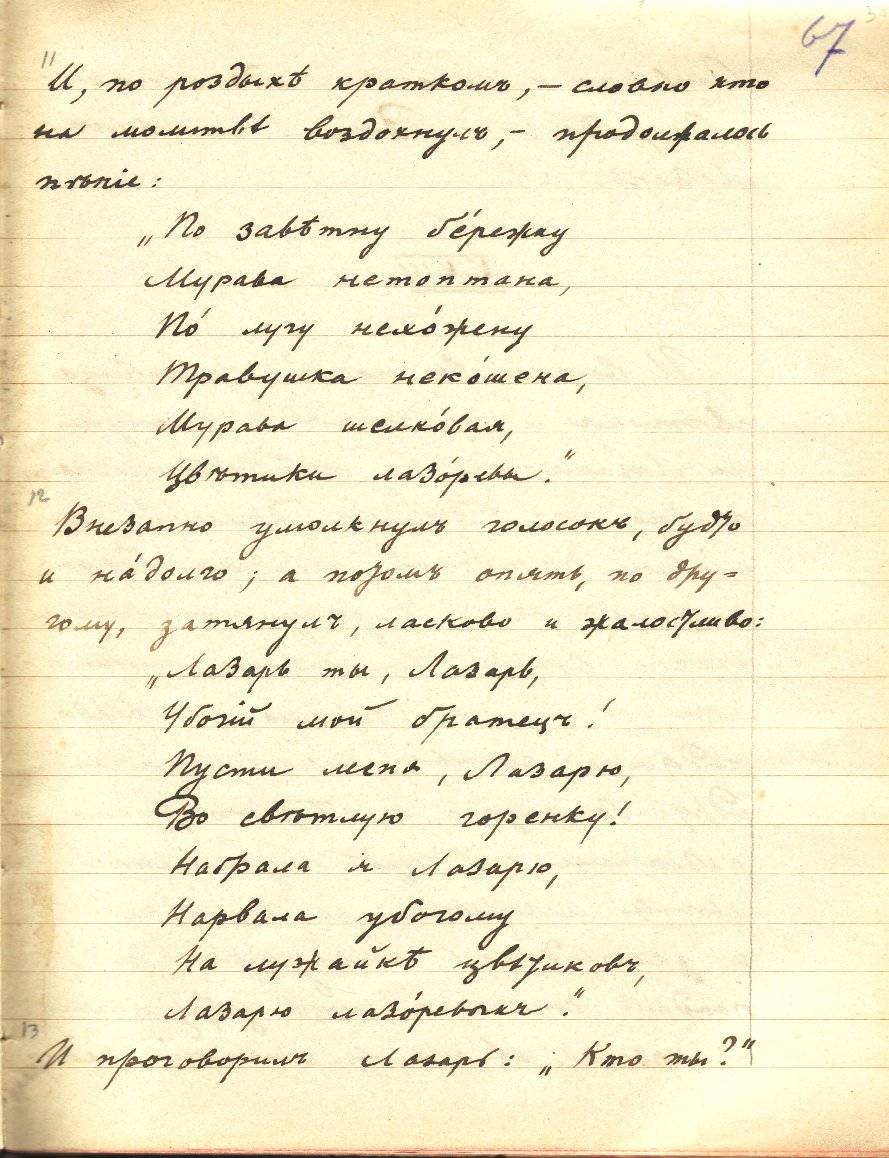 67
11
И, по роздыхѣ краткомъ, – словно кто
на молитвѣ воздохнулъ, – продолжалось
пѣніе:
„По завѣтну бе́режку
Мурава нетоптана,
По́ лугу нехо́жену
Травушка неко́шена,
Мурава шелко́вая,
Цвѣтики лазо́ревы."
12
Внезапно умолкнулъ голосокъ, будто
и на́долго; а потомъ опять, по дру=
гому, затянулъ, ласково и жалостливо:
„Лазарь ты, Лазарь,
Убогій мой братецъ!
Пусти меня, Лазарю,
Во свѣтлую горенку!
Набрала я Лазарю,
Нарвала убогому
На лужайкѣ цвѣтиковъ,
Лазарю лазо́ревыхъ."
13
И проговорилъ Лазарь: „Кто ты?"